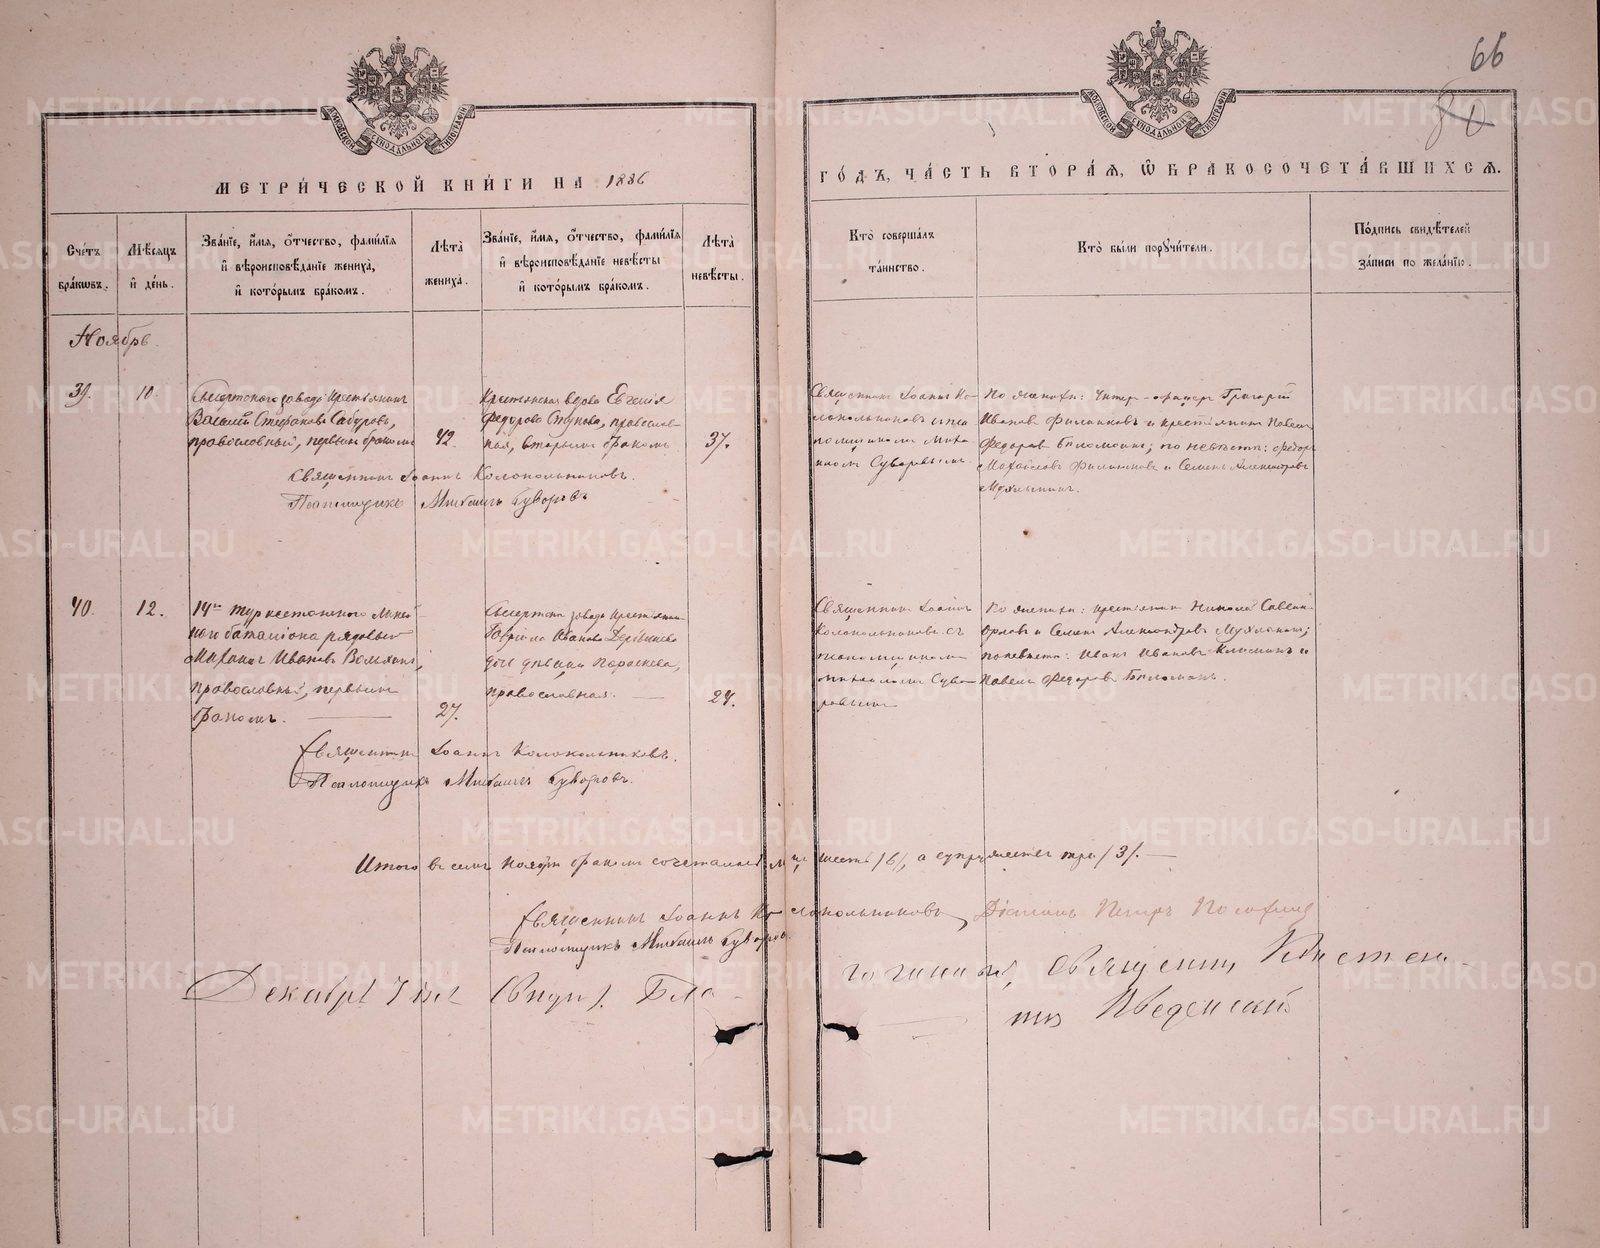 66
80
МЕТРИ́ЧЕСКОЙ КНИ́ГИ НА 1886
ГО́ДЪ, ЧА́СТЬ ВТОРА́Я, Ѡ БРАКОСОЧЕТА́ВШИХСЯ.
Сче́тъ бра́кωвъ.
Мѣ́сяцъ и де́нь.
Зва́нїе, и́мя, о́тчество, фами́лїя и вѣроисповѣ́данїе жениха̀, и кото́рымъ бра́комъ.
Лѣта̀ жениха̀.
Зва́нїе, и́мя, о́тчество, фами́лїя и вѣроисповѣ́данїе невѣ́сты и кото́рымъ бра́комъ.
Лѣта̀ невѣ́сты.
Кто̀ соверша́лъ та́инство.
Кто̀ бы́ли поручи́тели.
По́дпись свидѣ́телей за́писи по жела́нїю.
Ноябрь.
39.
10.
Сысертскаго завода крестьянинъ
Василій Стефановъ Сабуровъ,
православный, первымъ бракомъ
42.
Крестьянская вдова Евгенія
Федорова, православ-
ная, вторымъ бракомъ
37.
Священникъ Іоаннъ Ко-
локольниковъ и пса
ломщикомъ Миха
иломъ Суворовымъ
По женихѣ: Унтеръ-офицеръ Григорій
Ивановъ и крестьянинъ Павелъ
Федоровъ; по невѣстѣ: Федоръ
Михайловъ и Семенъ Александровъ
Священникъ Іоаннъ Колокольниковъ.
Псаломщикъ Михаилъ Суворовъ
40.
12.
14го Туркестанскаго Линей
наго баталіона рядовой
Михаилъ Ивановъ
православный, первымъ
бракомъ.
27.
Сысертскаго завода крестьянина
Гавріила
дочь дѣвица Параскева,
православная.
24.
Священникъ Іоаннъ
Колокольниковъ съ
псаломщикомъ
Михаиломъ Суво
ровымъ
По женихѣ: крестьяне Николай
Орловъ и Семенъ Александровъ
по невѣстѣ: Иванъ Ивановъ и
Павелъ Федоровъ
Священникъ Іоаннъ Колокольниковъ.
Псаломщикъ Михаилъ Суворовъ.
Итого въ семъ ноябрѣ бракомъ сочеталось лицъ шесть /6/, а супружествъ три /3/.
Священникъ Іоаннъ Колокольниковъ, Діаконъ Петръ
Псаломщикъ Михаилъ Суворовъ.
Декабря 7 дня Свидѣт. Бла-
гочинный, Священникъ Констан-
тинъ Введенскій
METRIKI.GASO-URAL.RU